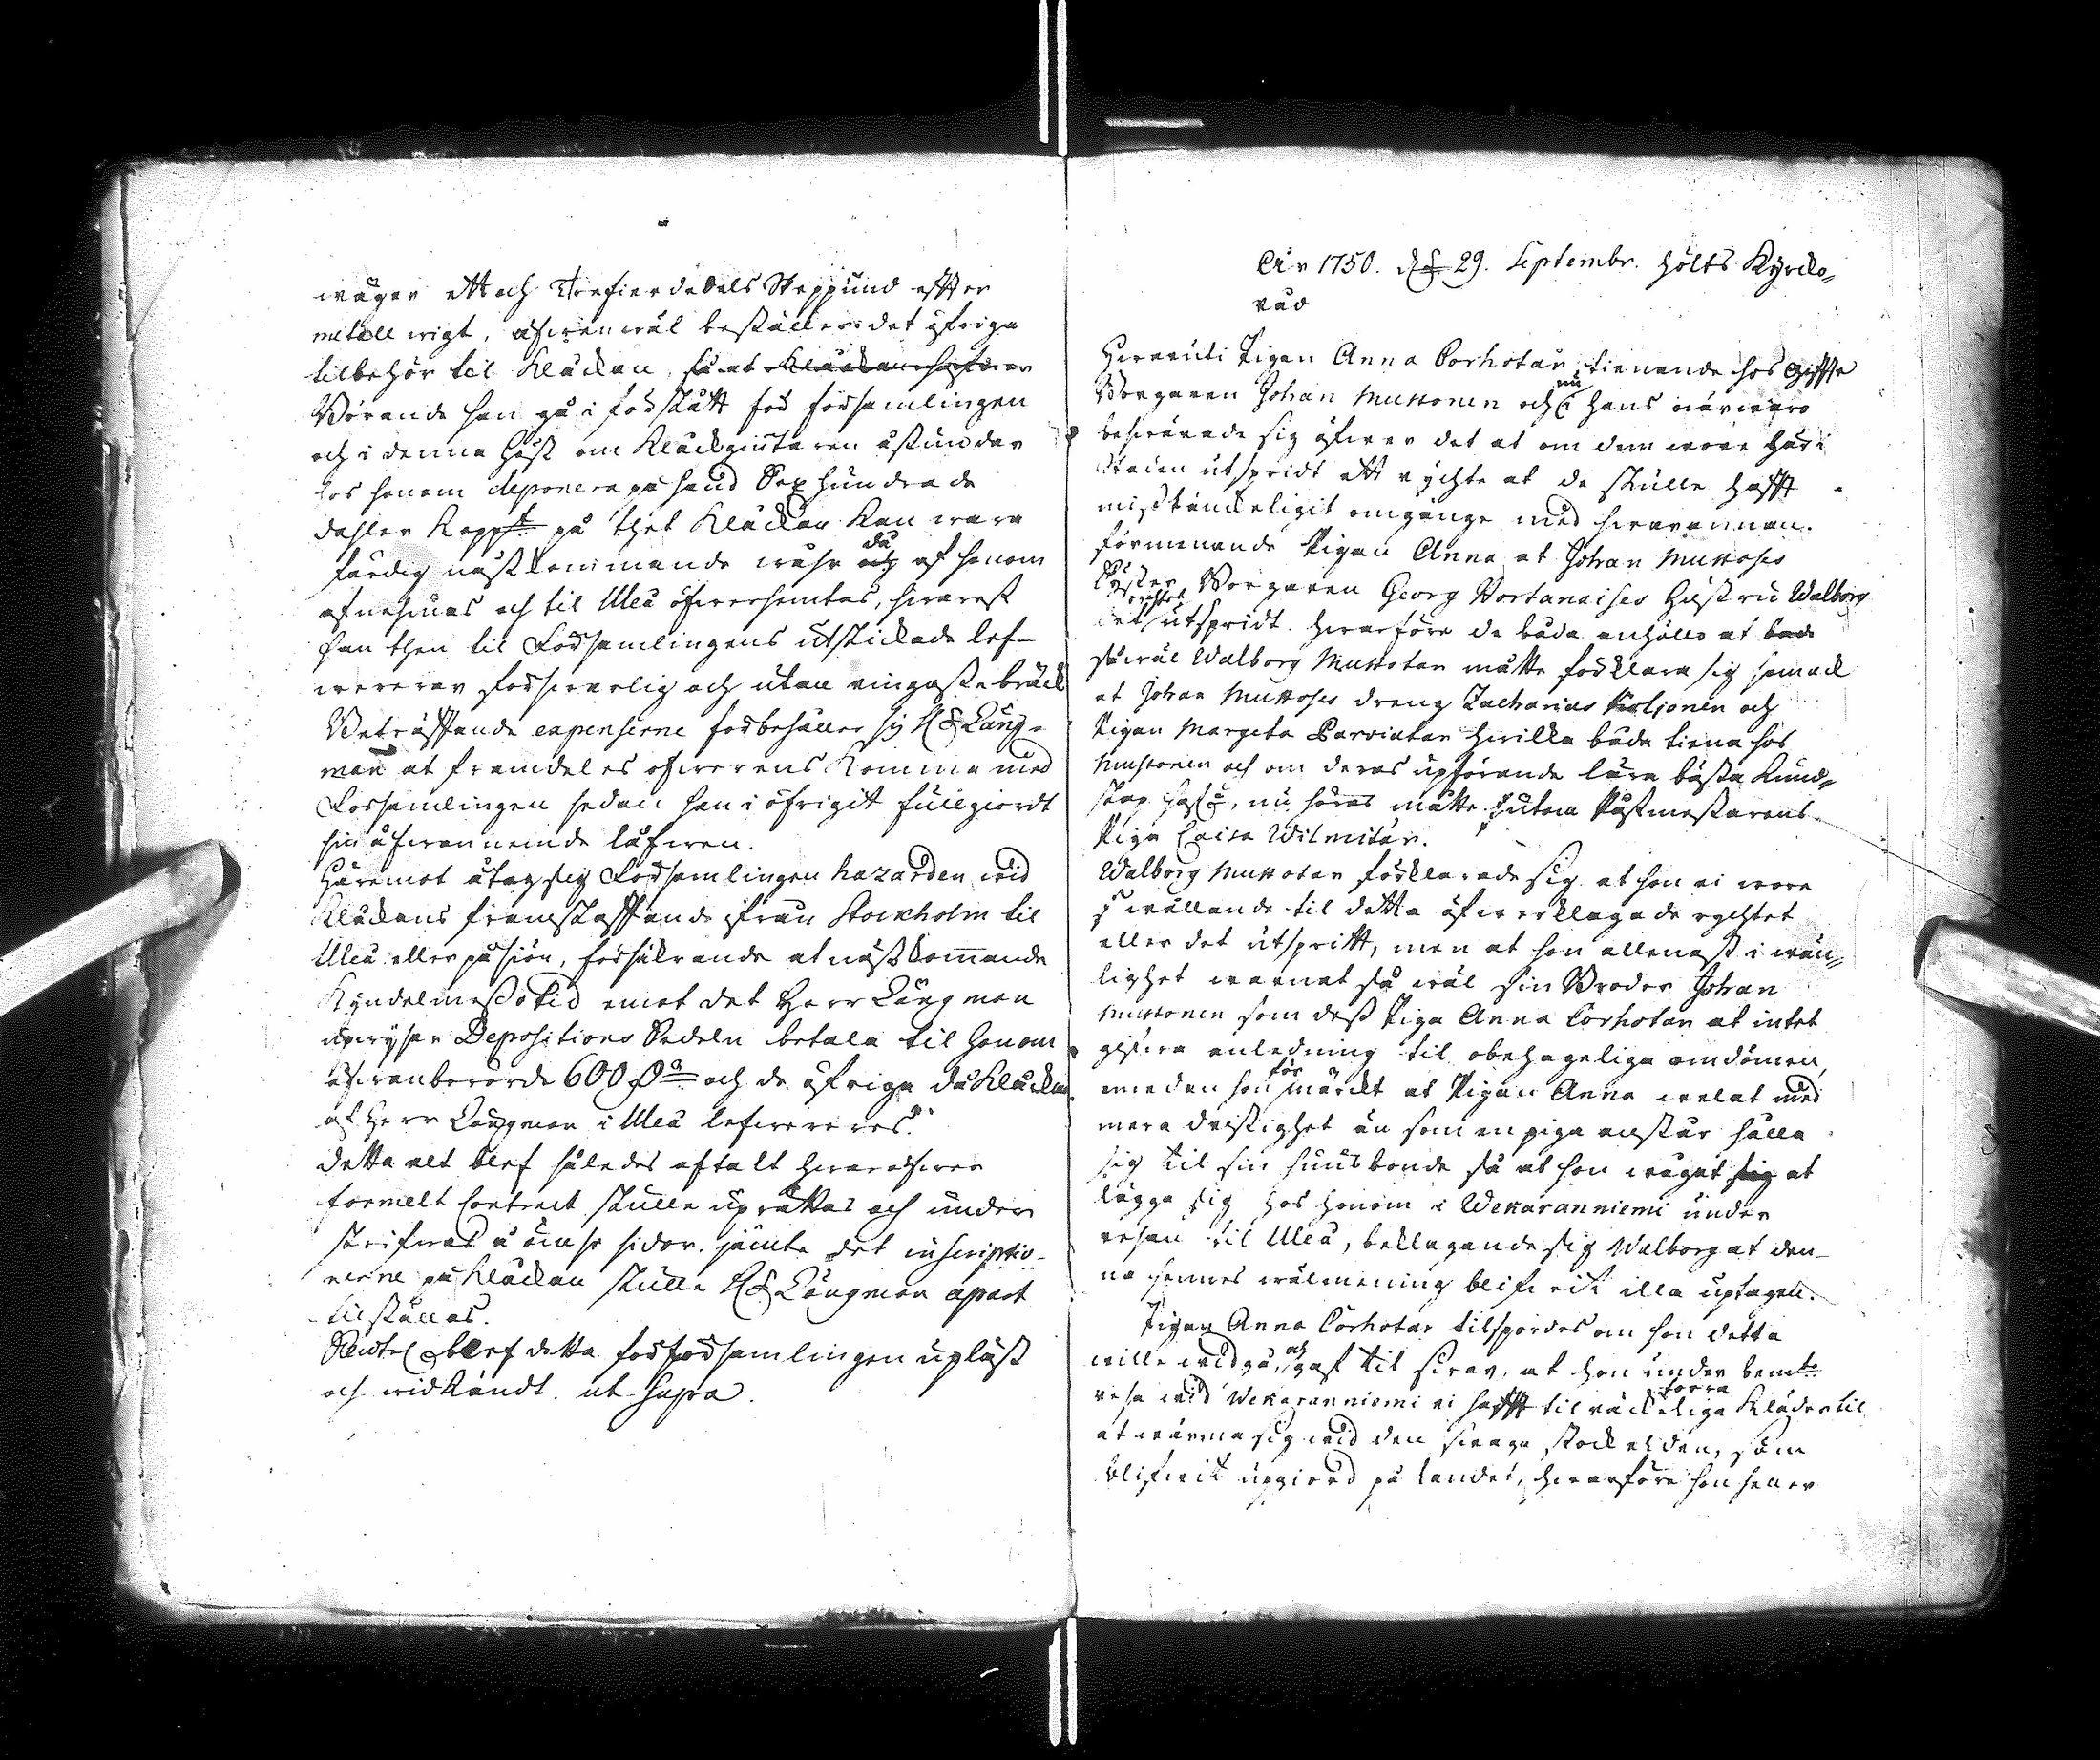 wäger ett och Trefierdedels Skeppund effter
metall wigt, äfwenwäl beställer det öfriga
tilbehör til Kläckan, så at Kläckan
Börande han gå i förskått för församlingen
och i denna höst om Kläckgiutaren åstundar
hos honom deponera på hand Sex hundrade
dahler Koppt på thet Kläckan kan wara
färdig nästkommande währ och då af honom
afnehmas och til Uleå öfwersendtas, hwarest
han then til Församlingens utskickade lef-
wererar forswarlig och utan ringaste bräck
Beträffande expenserne förbehåller sig Hr Lång-
man at framdeles öfwerens komma med
Församlingen sedan han i öfrigit fullgiordt
sin åfwannemde låfwen.
Häremot åtog sig Församlingen hazarden wid
Kläckans framskaffande ifrån Stockholm til
Uleå eller på siön, försäkrande at nästkommande
Kyndelmesso tid emot det Herr Långman
upwyser Depositions Sedeln betala til honom
åfwanberörde 600 Dr och de öfriga då Kläckan
af Herr Långman i Uleå lefwereres.
Detta alt blef således aftalt hwaröfwer
formelt Contract skulle uprättas och under
skrifwas å ömse sidor. jämte det inscriptio-
nerne på Kläckan skulle Hr Långman apart
tilställas.
blef detta för församlingen upläst
och widkändt. ut supra.
Åhr 1750. d. 29. Septembr. hölts Kyrcko-
råd
Hwaruti Pigan Anna Corhotar, tienande hos Giffte
Borgaren Johan Mustonen och nu i hans närwaro
beswärade sig öfwer det at om dem wore här i
Staden utspridt ett rychte at de skulle hafft
misstänckeligit omgänge med hwarannan.
förmenande Pigan Anna at Johan Mustoses
Syster Borgaren Georg Hortanaises Hustru Walborg
rychtet utspridt. hwarföre de båda anhöllo at
såwäl Walborg Mustotar måtte förklara sig som ock
at Johan Mustoses dräng Zacharias Koljonen och
Pigan Margeta Parviatar hwilka båda tiena hos
Mustonen och om deras upförande lära bästa kund-
skap hafwa, nu höras måtte Postmestarens
Piga Caisa Wilmitär.
Walborg Mustotar förklarade sig at hon ei wore
wållande til detta öfwerklagade rychtet
eller det utspritt, men at hon allenast i wän-
lighet warnat så wäl sin Broder Johan
Mustonen som dess Piga Anna Corhotar at intet
gifwa anledning til obehageliga omdömen,
medan hon förmärckt at Pigan Anna welat med
mera dristighet än som en piga anstår hålla
sig til sin husbonde så at hon wågat sig at
lägga sig hos honom i Wekaranniemi under
resan til Uleå, beklagande sig Walborg at den-
na hennes wälmening blifwit illa uptagen.
Pigan Anna Corhotar tilspordes om hon detta
wille widgå, och gaf til swar, at hon under bemte
resa wid Wekaranniemi ei hafft tilräckeliga torra Kläder til
at wärma sig wid den swaga stockelden, som
blifwit upgiord på landet, hwarföre hon hen er